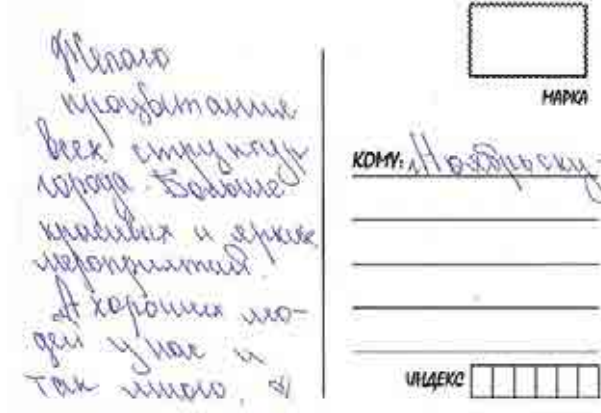 Желаю
процветания
всех структур
города. Больше
красивых и ярких
мероприятий.
А хороших лю-
дей у нас и
так много.
МАРКА
КОМУ: Ноябрьску
ИНДЕКС